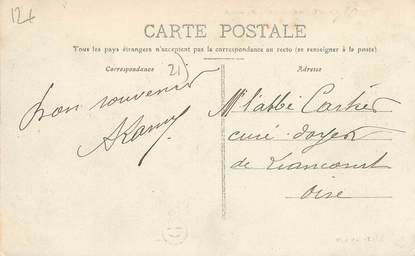 124
CARTE POSTALE
Tous les pays étrangers n'acceptent pas la correspondance au recto (se renseigner à la poste)
Correspondance
21
Adresse
bon souvenir
Mr l'abbé
curé-doyen
de Liancourt
Oise